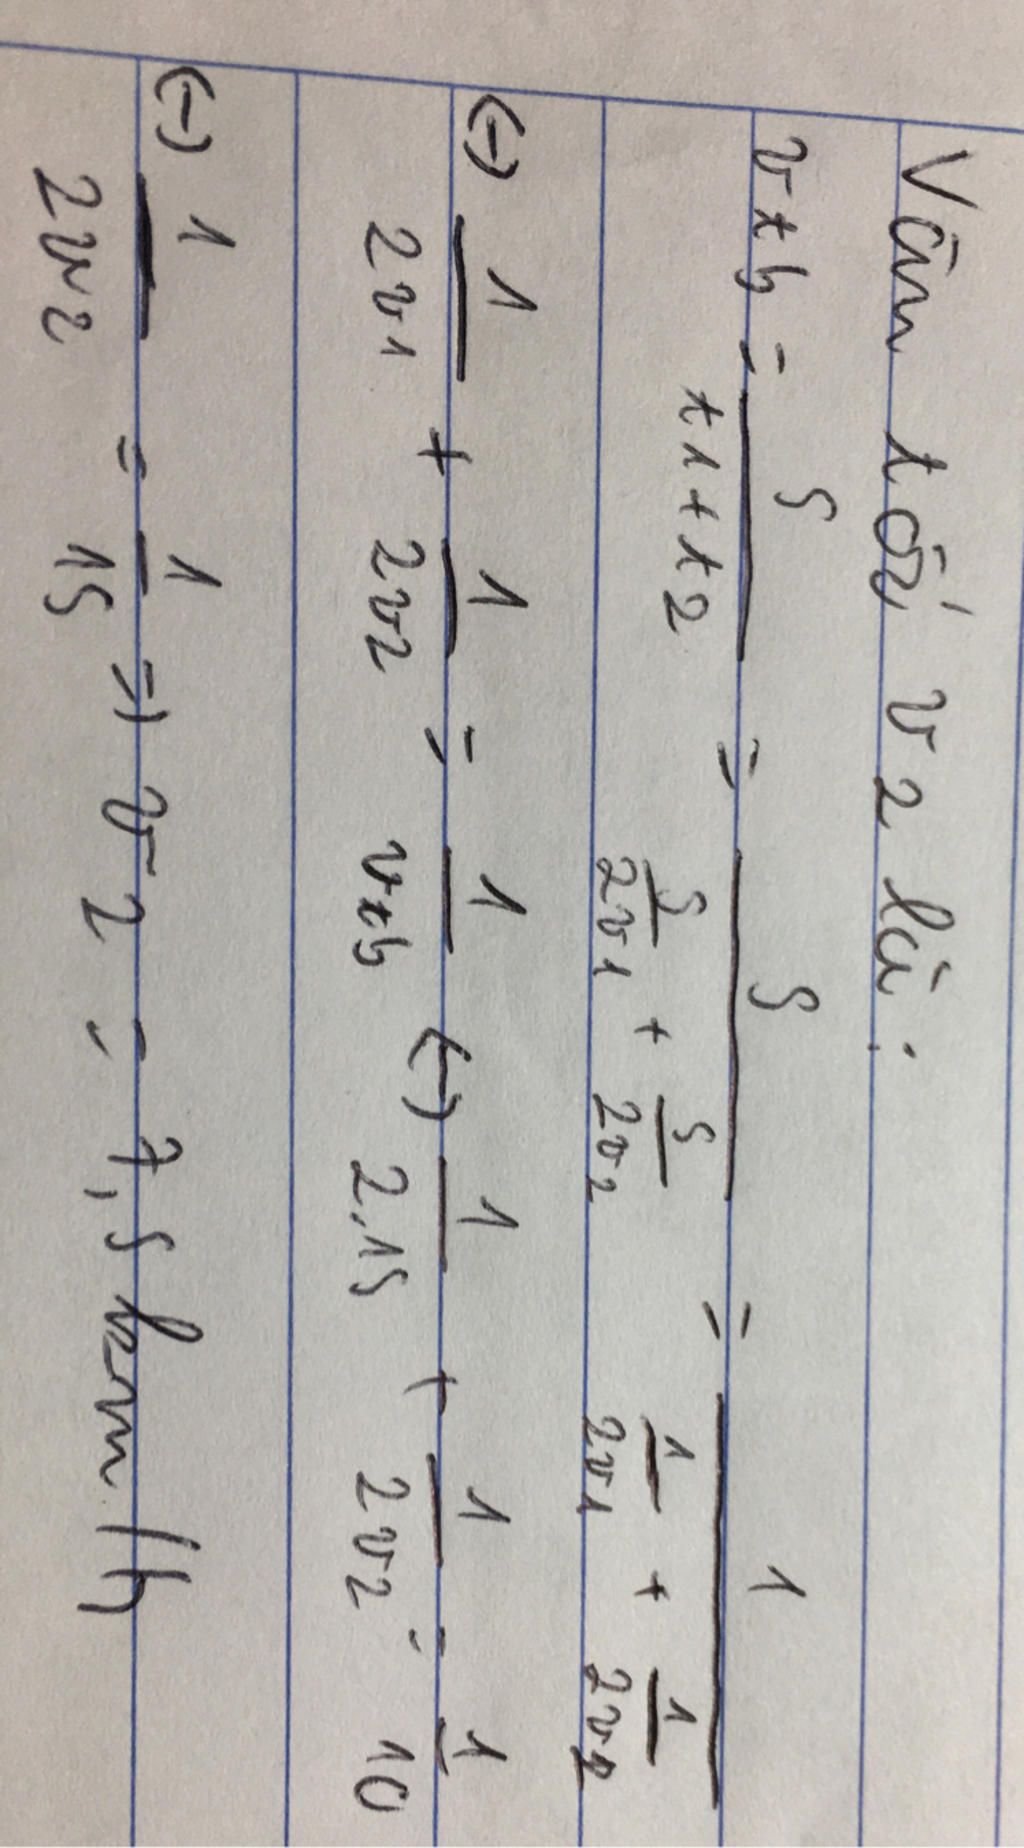 Vận tốc v2 là:
vtb = S/(t1+t2) = S/(S/2v1 + S/2v2) = 1/(1/2v1 + 1/2v2)
(-) 1/2v1 + 1/2v2 = 1/vtb (-) 1/2.15 + 1/2v2 = 1/10
(-) 1/2v2 = 1/15 => v2 = 7,5 km/h